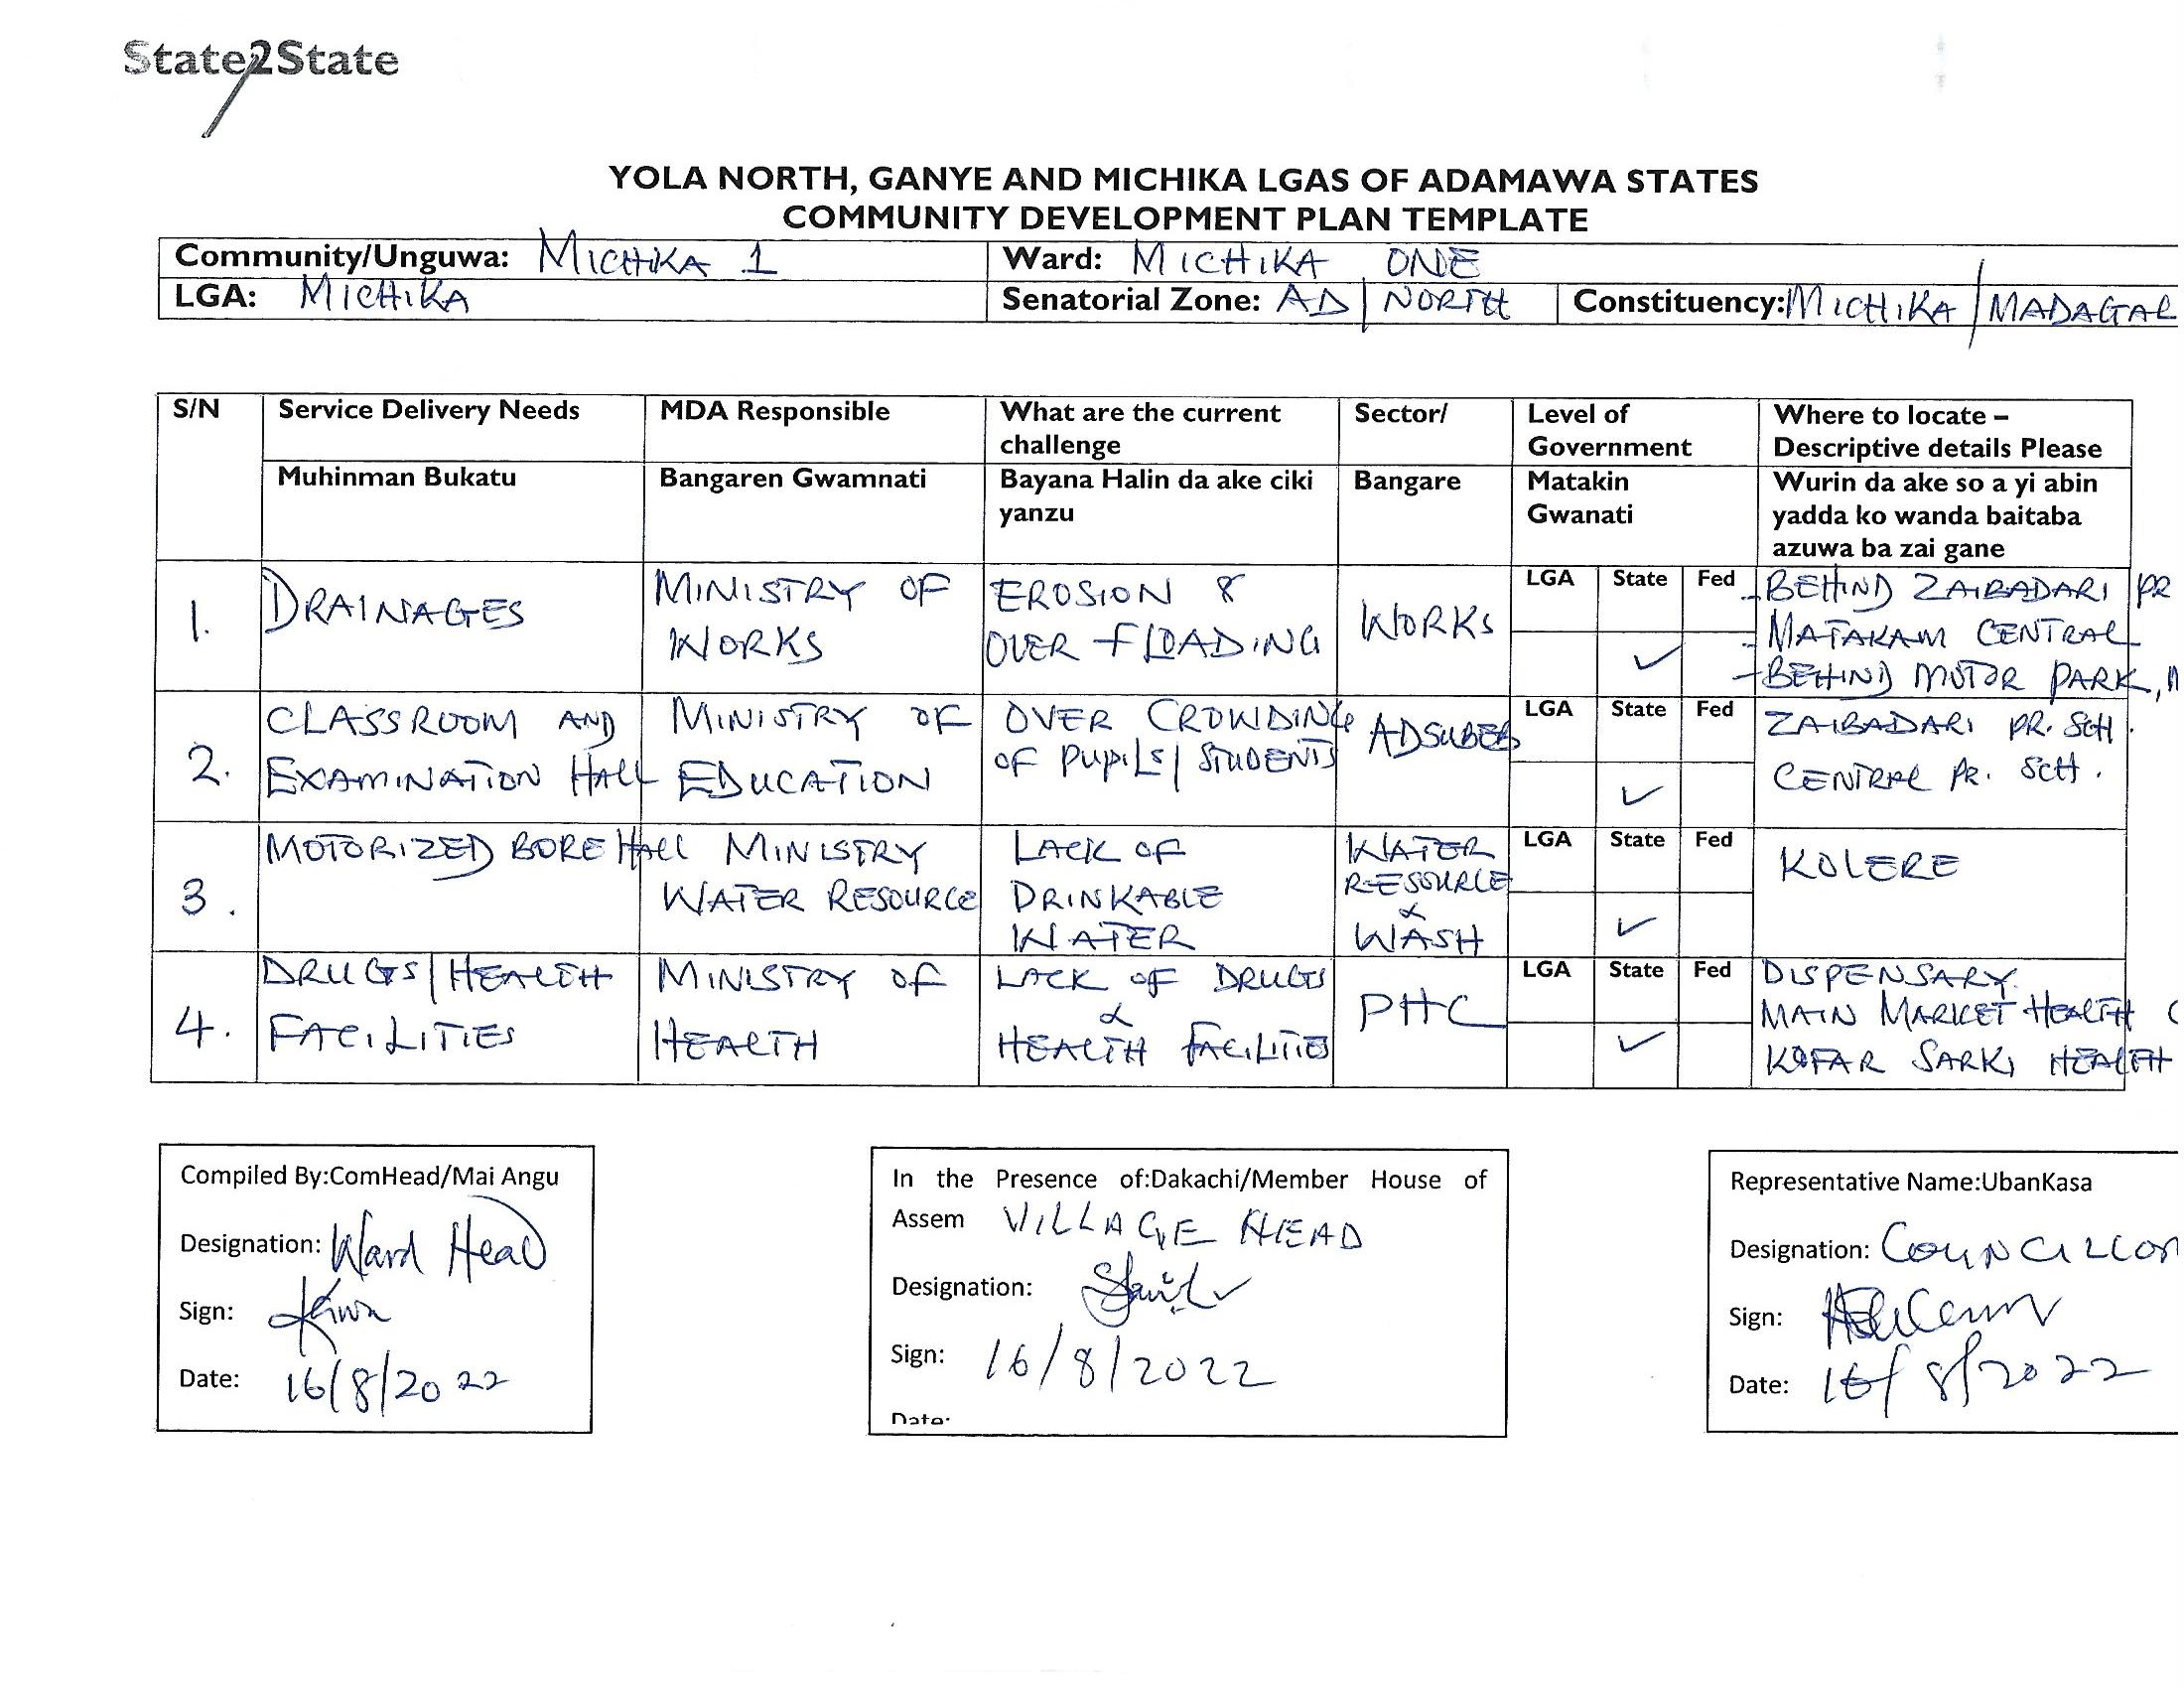 State2State
YOLA NORTH, GANYE AND MICHIKA LGAS OF ADAMAWA STATES
COMMUNITY DEVELOPMENT PLAN TEMPLATE
Community/Unguwa: MICHIKA 1 Ward: MICHIKA ONE
LGA: MICHIKA Senatorial Zone: AD/NORTH Constituency: MICHIKA/MADAGAL
S/N Service Delivery Needs MDA Responsible What are the current challenge Sector/ Level of Government Where to locate – Descriptive details Please
Muhinman Bukatu Bangaren Gwamnati Bayana Halin da ake ciki yanzu Bangare Matakin Gwanati Wurin da ake so a yi abin yadda ko wanda baitaba azuwa ba zai gane
1. DRAINAGES MINISTRY OF WORKS EROSION & OVER FLOADING WORKS LGA State ✓ Fed - BEHIND ZAIBADARI PR
- MATAKAM CENTRAL
- BEHIND MOTOR PARK,
2. CLASSROOM AND EXAMINATION HALL MINISTRY OF EDUCATION OVER CROWDING OF PUPILS/STUDENTS ADSUBEB LGA State ✓ Fed ZAIBADARI PR. SCH.
CENTRAL PR. SCH.
3. MOTORIZED BORE HALL MINISTRY WATER RESOURCE LACK OF DRINKABLE WATER WATER RESOURCE & WASH LGA State ✓ Fed KOLERE
4. DRUGS/HEALTH FACILITIES MINISTRY OF HEALTH LACK OF DRUGS & HEALTH FACILITIES PHC LGA State ✓ Fed DISPENSARY
MAIN MARKET HEALTH C
KOFAR SARKI HEALTH
Compiled By:ComHead/Mai Angu
Designation: Ward Head
Sign:
Date: 16/8/2022
In the Presence of:Dakachi/Member House of
Assem VILLAGE HEAD
Designation:
Sign: 16/8/2022
Date:
Representative Name:UbanKasa
Designation: COUNCILLOR
Sign:
Date: 16/8/2022